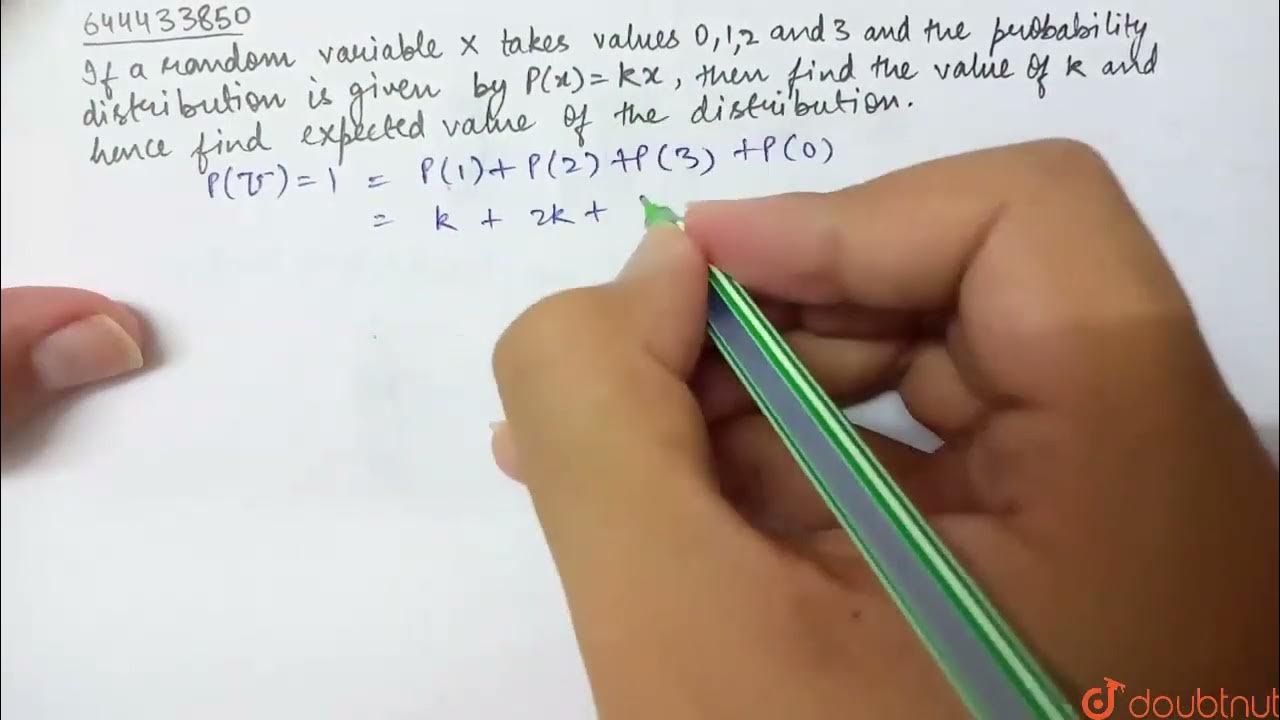 644433850
If a random variable x takes values 0,1,2 and 3 and the probability
distribution is given by P(x)=kx, then find the value of k and
hence find expected value of the distribution.
P(U)=1 = P(1)+P(2)+P(3)+P(0)
= k + 2k +
doubtnut